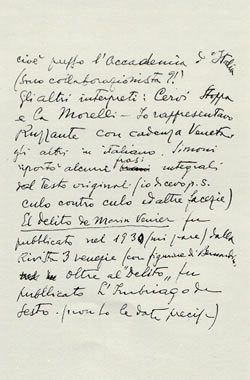 cioè presso l'Accademia d'Italia
(sono collaborazionista?!
Gli altri interpreti: Cervi Stoppa
e la Morelli - Io rappresentavo
Ruzzante con cadenza Veneta
gli altri in italiano. Simoni
riportò alcuni frasi integrali
del testo original (io dicevo p.s.
culo contro culo ed altre facezie)
El delito de Maria Venier fu
pubblicato nel 1930 (mi pare) dalla
Rivista 3 venezie (con figurine di
oltre al "Delito" fu
pubblicato L'Imbriago de
Sesto. (non ho le date precise)